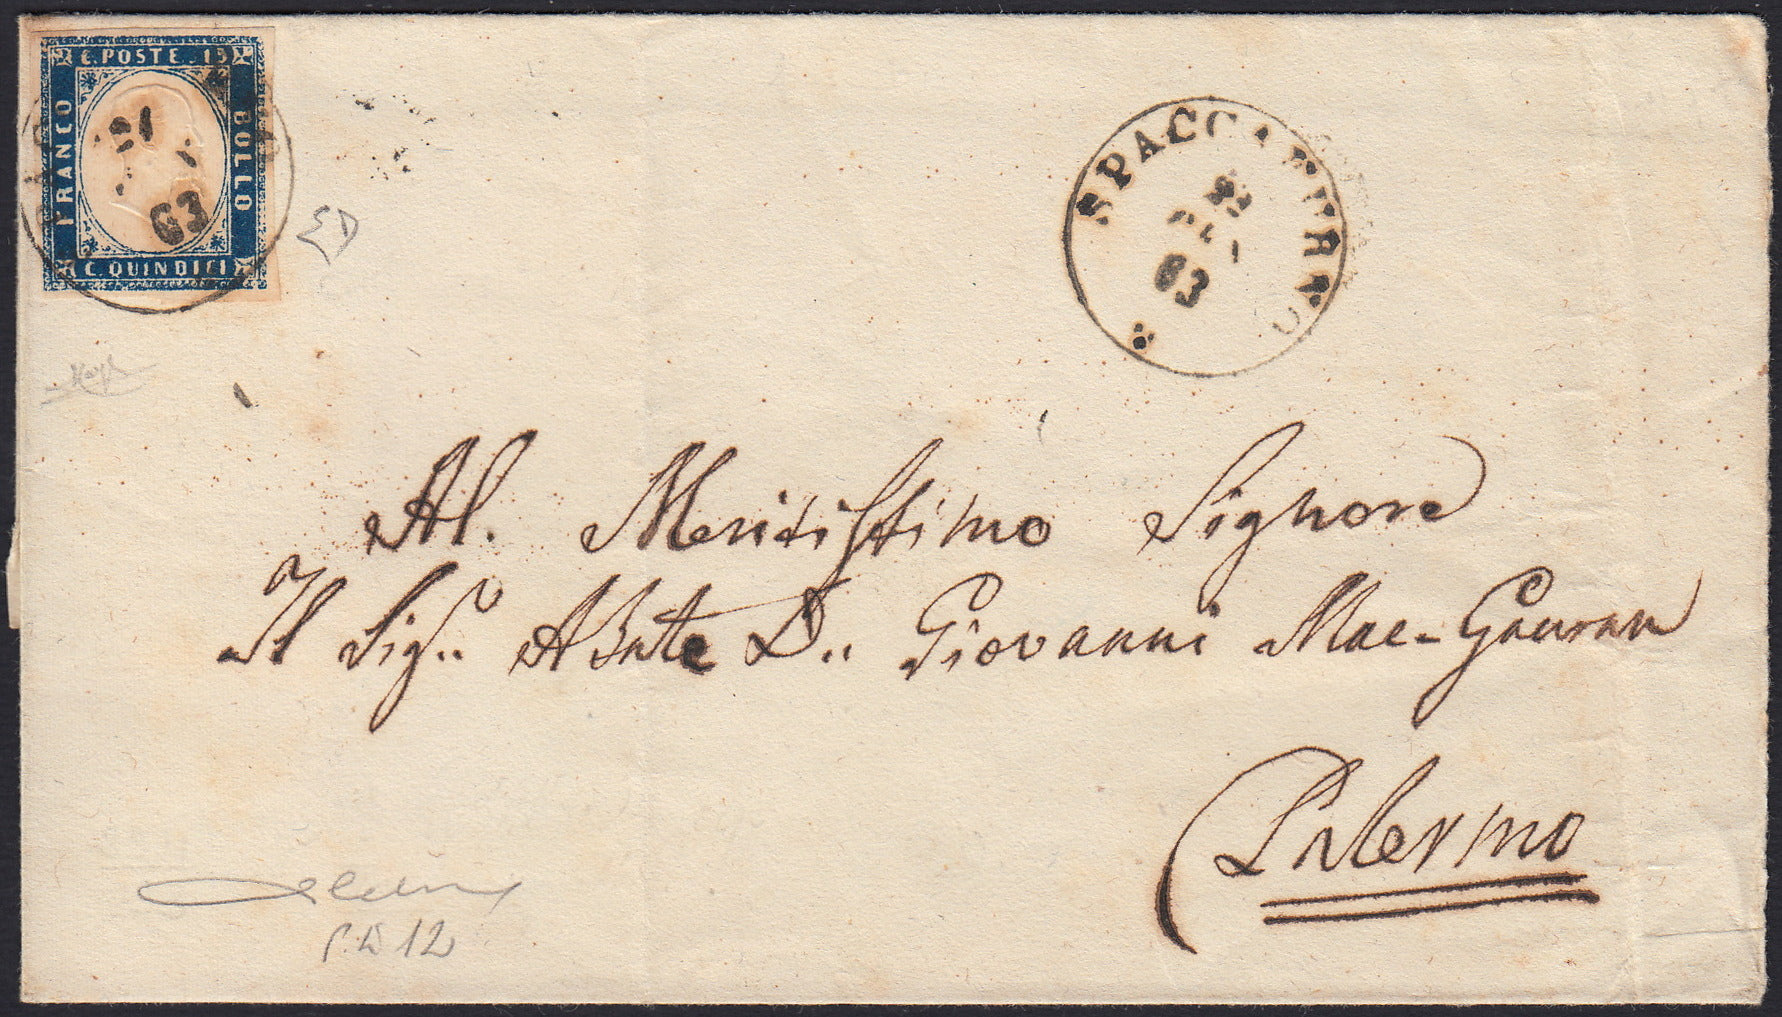 C. POSTE. 15
FRANCO
BOLLO
C. QUINDICI
63
SPACCAFURNO
63
Al. Meritissimo Signore
Il Sig.r Abate D.n Giovanni Mac-Gauran
Palermo
P.D 12